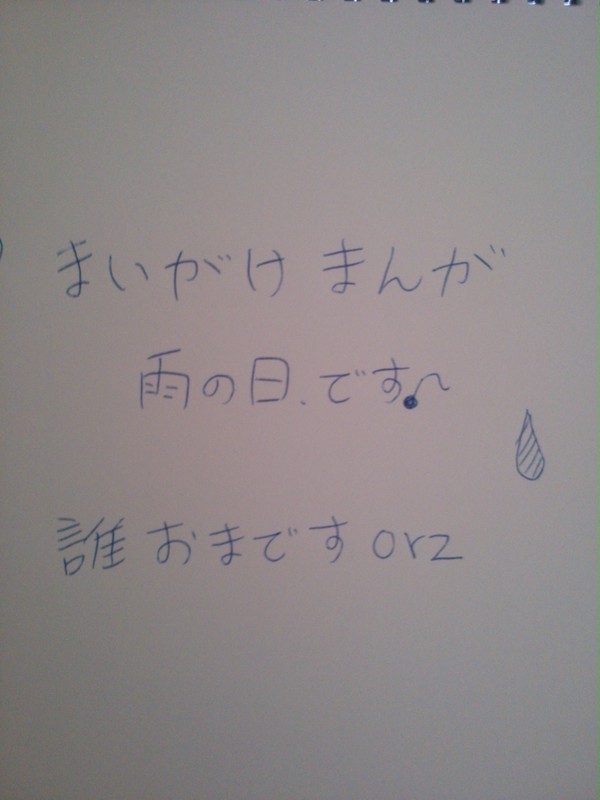 まいがけ まんが
雨の日、です〜
誰おまです orz